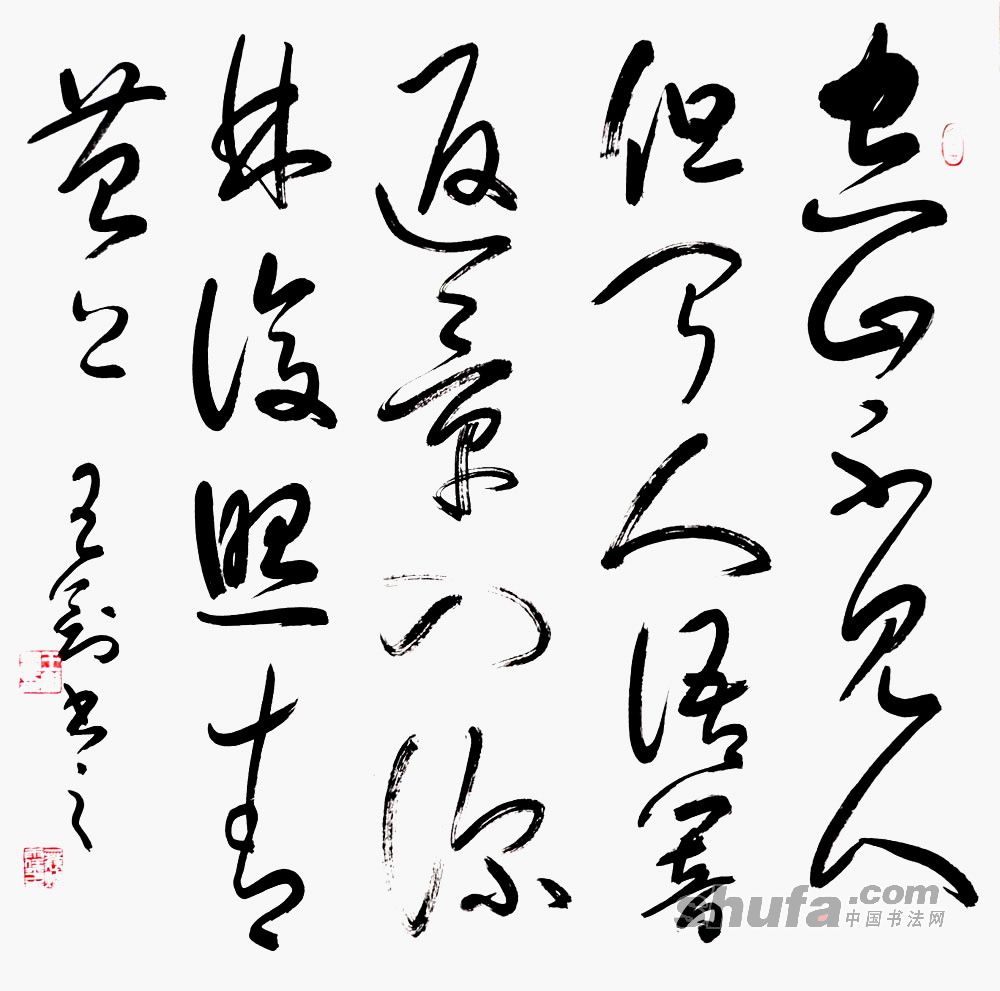 空山不見人
但聞人語響
返景入深
林復照青
苔上 書之
shufa.com
中国书法网